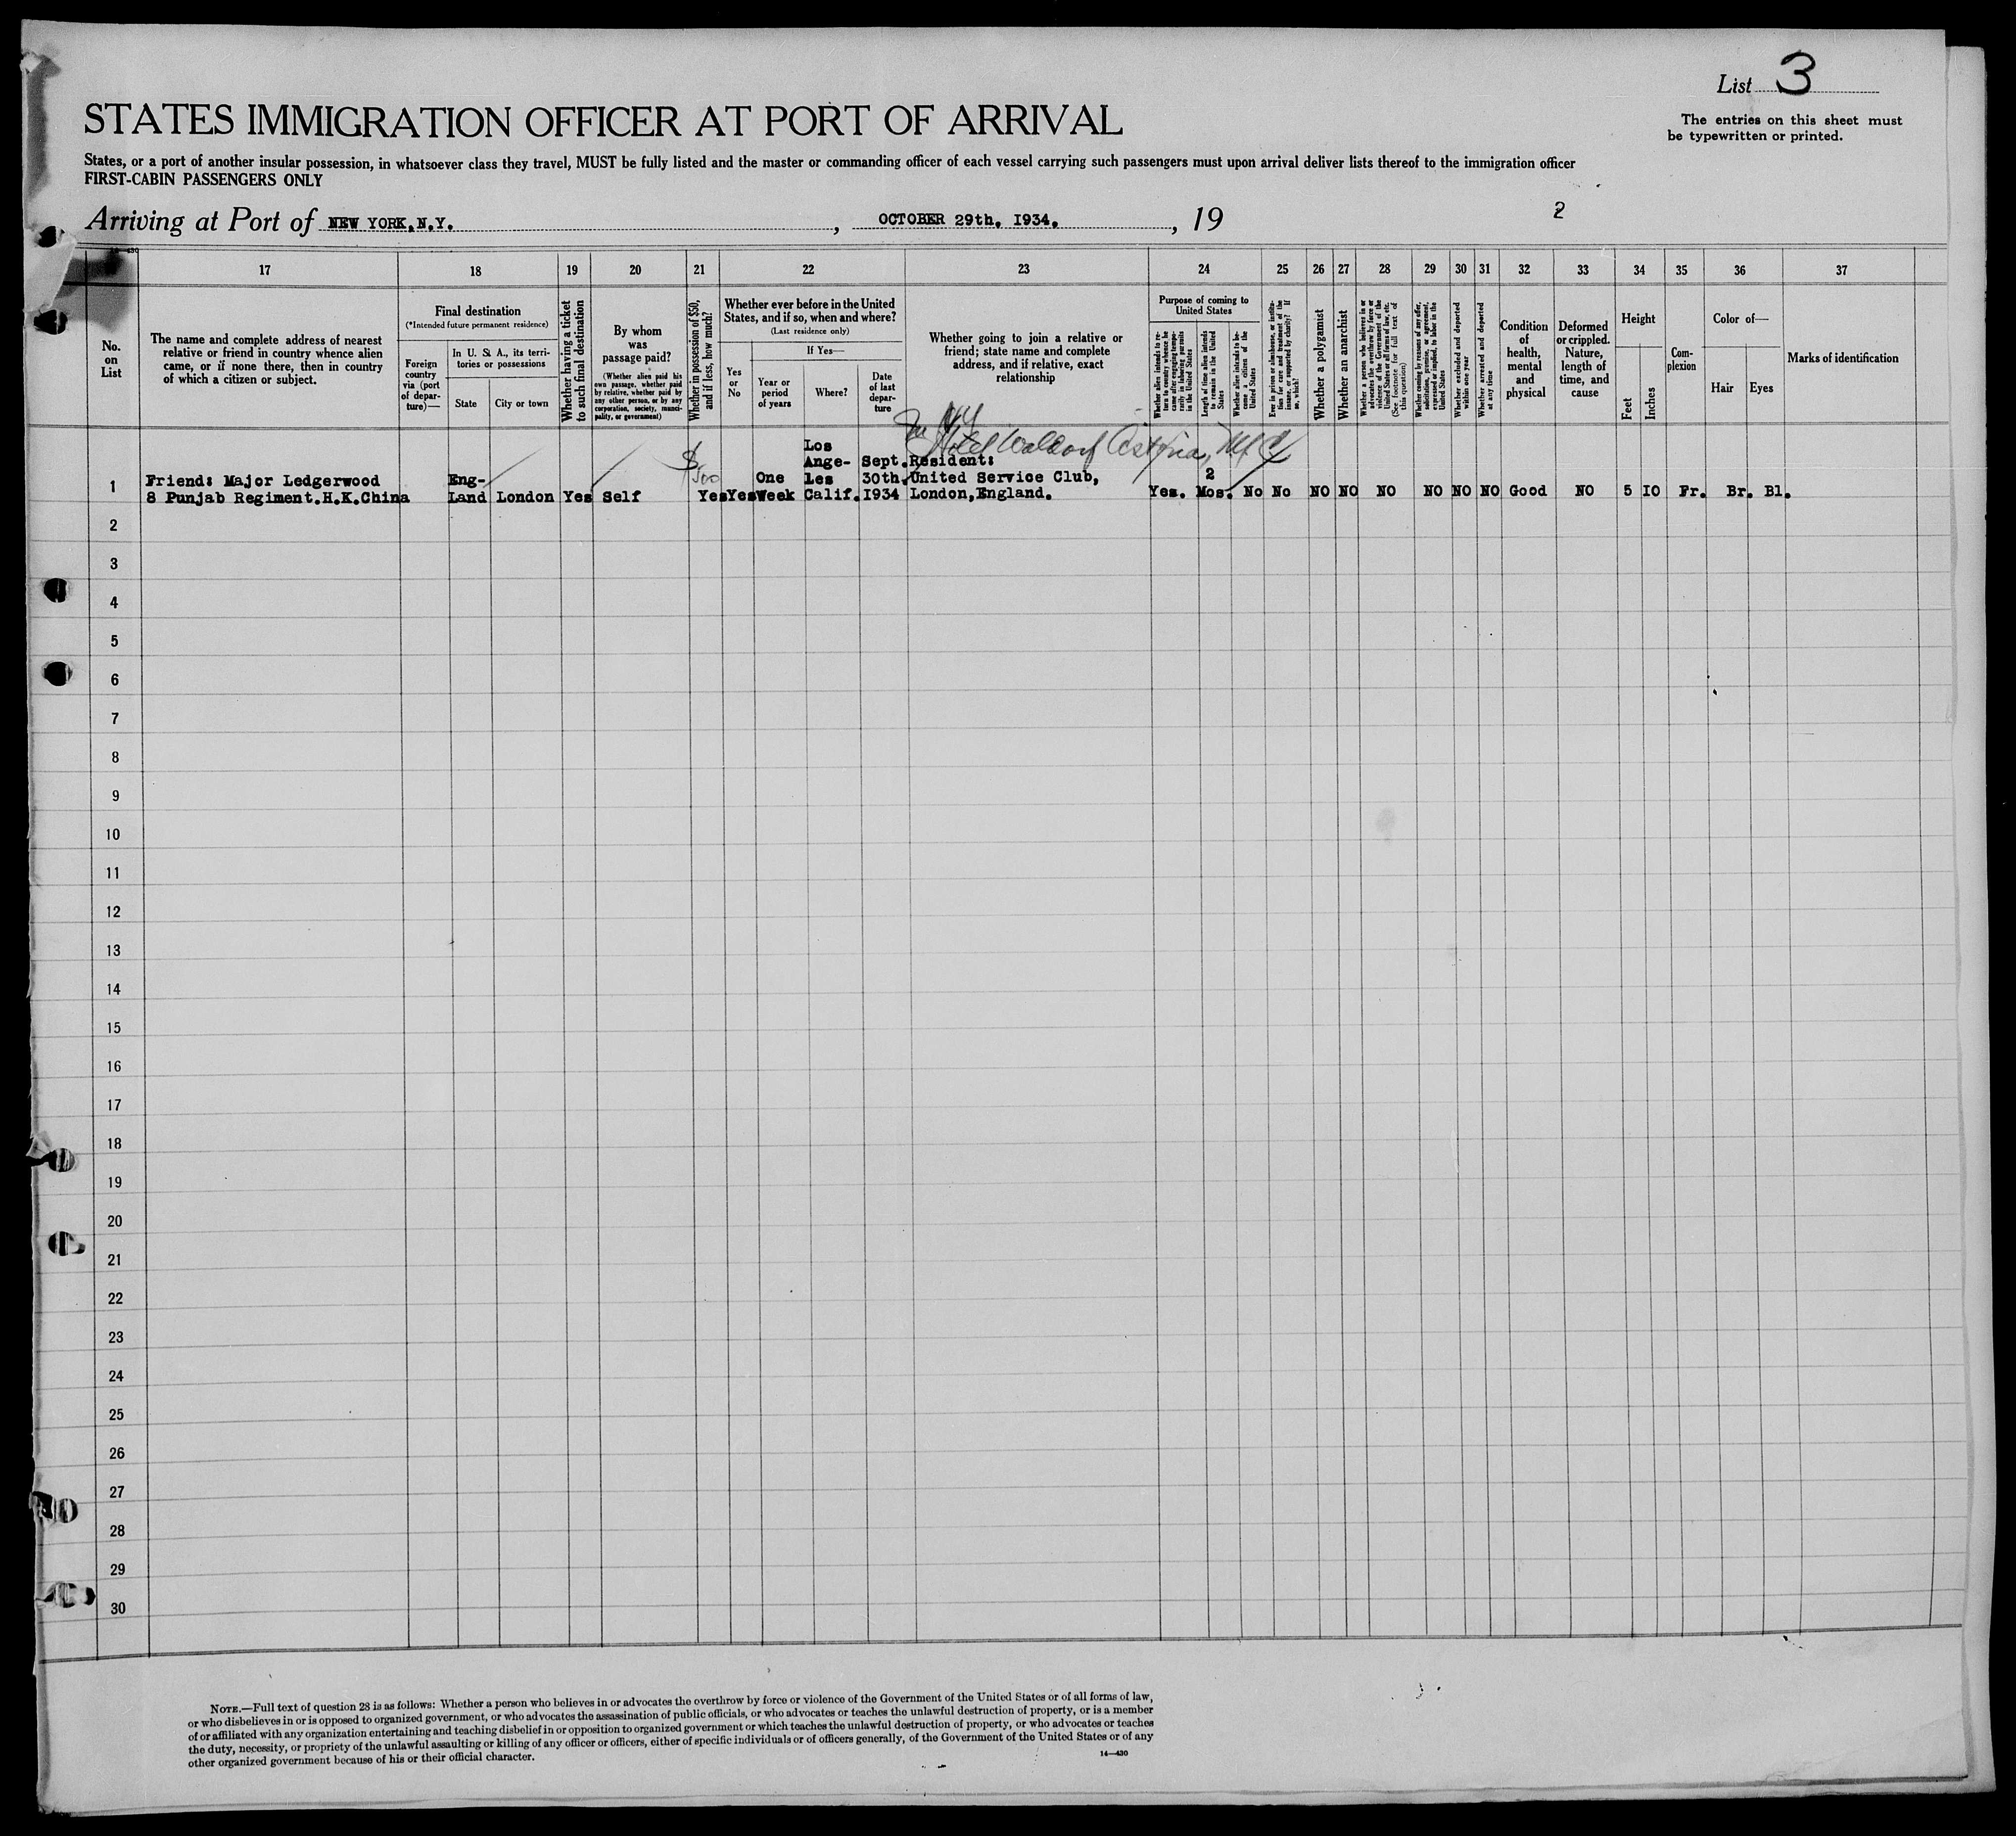 List 3
STATES IMMIGRATION OFFICER AT PORT OF ARRIVAL
The entries on this sheet must
be typewritten or printed.
States, or a port of another insular possession, in whatsoever class they travel, MUST be fully listed and the master or commanding officer of each vessel carrying such passengers must upon arrival deliver lists thereof to the immigration officer
FIRST-CABIN PASSENGERS ONLY
Arriving at Port of NEW YORK.N.Y. , OCTOBER 29th. I934. , 19
2
17 18 19 20 21 22 23 24 25 26 27 28 29 30 31 32 33 34 35 36 37
No.
on
List
The name and complete address of nearest
relative or friend in country whence alien
came, or if none there, then in country
of which a citizen or subject.
Final destination
(*Intended future permanent residence)
Foreign
country
via (port
of depar-
ture)—
In U. S. A., its terri-
tories or possessions
State
City or town
Whether having a ticket
to such final destination
By whom
was
passage paid?
(Whether alien paid his
own passage, whether paid
by relative, whether paid by
any other person, or by any
corporation, society, munici-
pality, or government)
Whether in possession of $50,
and if less, how much?
Whether ever before in the United
States, and if so, when and where?
(Last residence only)
Yes
or
No
If Yes—
Year or
period
of years
Where?
Date
of last
depar-
ture
Whether going to join a relative or
friend; state name and complete
address, and if relative, exact
relationship
Purpose of coming to
United States
Whether alien intends to re-
turn to country whence he
came after engaging tempo-
rarily in laboring pursuits
in the United States
Length of time alien intends
to remain in the United
States
Whether alien intends to be-
come a citizen of the
United States
Ever in prison or almshouse, or institu-
tion for care and treatment of the
insane, or supported by charity? If
so, which?
Whether a polygamist
Whether an anarchist
Whether a person who believes in or
advocates the overthrow by force or
violence of the Government of the
United States or all forms of law, etc.
(See footnote for full text of
this question)
Whether coming by reasons of any offer,
solicitation, promise, or agreement,
expressed or implied, to labor in the
United States
Whether excluded and deported
within one year
Whether arrested and deported
at any time
Condition
of
health,
mental
and
physical
Deformed
or crippled.
Nature,
length of
time, and
cause
Height
Feet
Inches
Com-
plexion
Color of—
Hair
Eyes
Marks of identification
Hotel Waldorf Astoria, NYC
1
Friend: Major Ledgerwood
8 Punjab Regiment.H.K.China
Eng-
Land
London
Yes
Self
$500
Yes
Yes
One
Week
Los
Ange-
Les
Calif.
Sept.
30th.
I934
Resident:
United Service Club,
London,England.
Yes.
2
Mos.
No
No
NO
NO
NO
NO
NO
NO
Good
NO
5
IO
Fr.
Br.
Bl.
2
3
4
5
6
7
8
9
10
11
12
13
14
15
16
17
18
19
20
21
22
23
24
25
26
27
28
29
30
NOTE.—Full text of question 28 is as follows: Whether a person who believes in or advocates the overthrow by force or violence of the Government of the United States or of all forms of law,
or who disbelieves in or is opposed to organized government, or who advocates the assassination of public officials, or who advocates or teaches the unlawful destruction of property, or is a member
of or affiliated with any organization entertaining and teaching disbelief in or opposition to organized government or which teaches the unlawful destruction of property, or who advocates or teaches
the duty, necessity, or propriety of the unlawful assaulting or killing of any officer or officers, either of specific individuals or of officers generally, of the Government of the United States or of any
other organized government because of his or their official character.
14—430